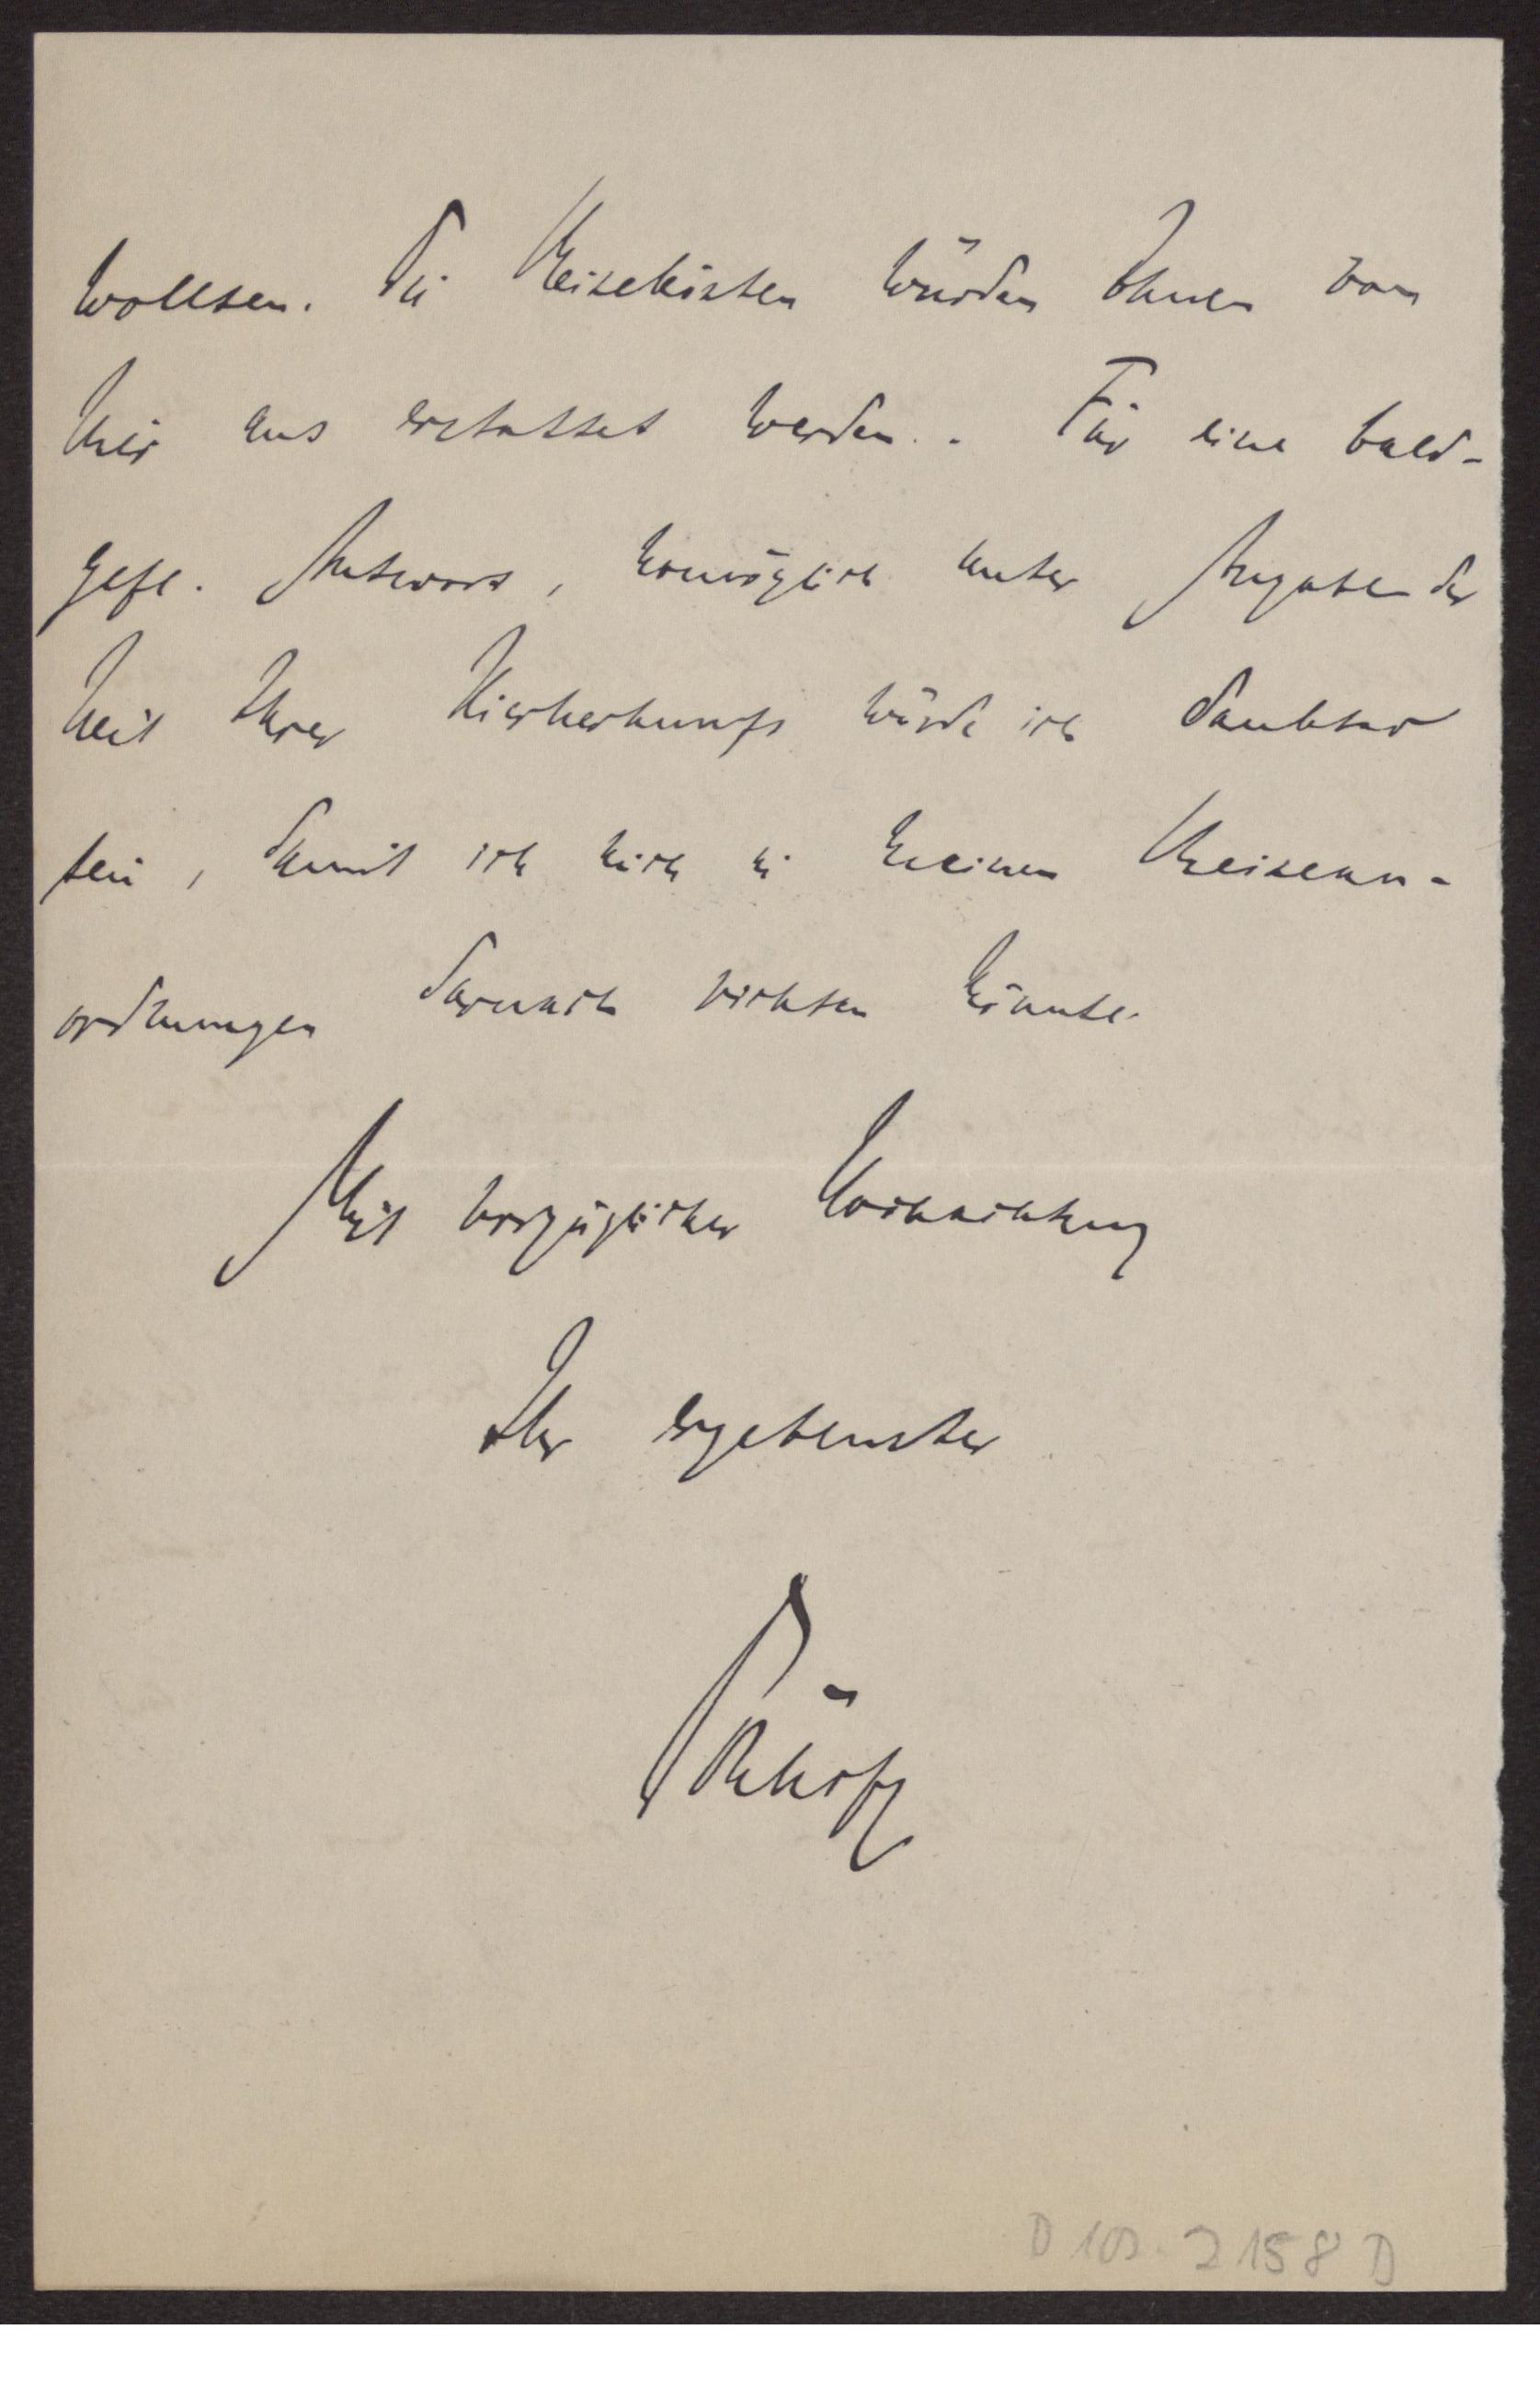 wollten. Die Reisekosten würden Ihnen von
hier aus erstattet werden. Für eine bald-
gefl. Antwort, womöglich unter Angabe der
Zeit Ihrer Hierherkunft würde ich dankbar
sein, damit ich mich in meinen Reisean-
ordnungen darnach richten könnte.
Mit vorzüglicher Hochachtung
Ihr ergebenster
D 100. 2158 D